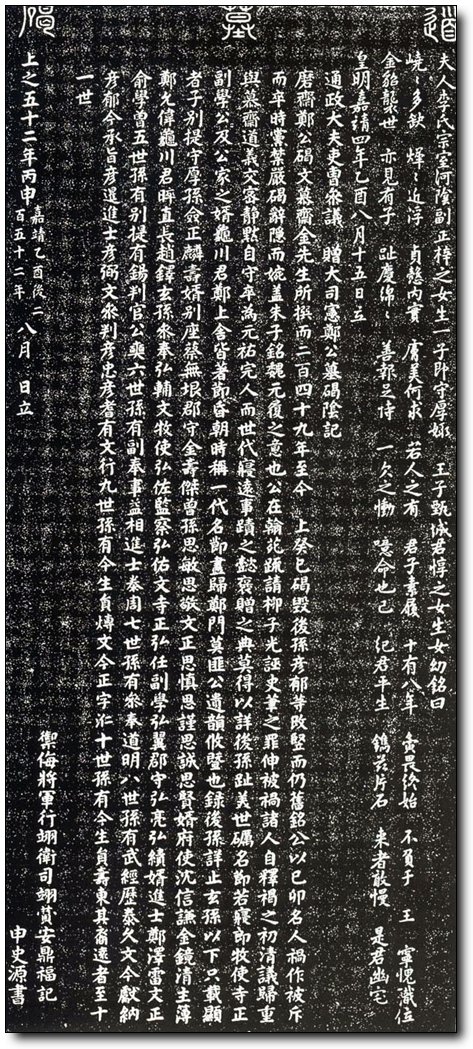 道 墓 碣
夫人李氏宗室河陰副正梓之女生一子卽守厚娶 王子甄城君惇之女生女幼銘曰
嶢〻多缺 燁〻近浮 貞慤內實 膚美何求 若人之有 君子素履 十有八年 寅畏終始 不負于 王 寧愧職位
金能襲世 亦見有子 趾慶綿〻 善報足恃 一欠之慟 噫命也已 紀君平生 鐫茲片石 來者敢慢 是君幽宅
皇明嘉靖四年乙酉八月十五日立
通政大夫吏曹參議 贈大司憲鄭公墓碣陰記
磨齋鄭公碣文慕齋金先生所撰而二百四十九年至今 上癸巳碣毁後孫彦郁等改竪而仍舊銘公以己卯名人禍作被斥
而卒時黨禁嚴碣辭隱而婉蓋朱子銘魏元履之意也公在翰苑疏請柳子光誣史筆之罪伸被禍諸人自釋褐之初淸議歸重
與慕齋道義交密靜黙自守卒爲元祐完人而世代寢遠事蹟之懿褒贈之典莫得以詳後孫趾美世礪名節若寢郎牧使寺正
副學公及公家之婿龜川君鄭上舍皆著節昏朝時稱一代名節盡歸鄭門莫匪公遺韻攸曁也錄後孫詳止玄孫以下只載顯
者子別提守厚孫僉正麟壽婿別座蔡無垠郡守金壽傑曾孫思敏思敬文正思愼思謹思誠思賢婿府使沈信謙金鏡清主簿
鄭允偉龜川君晬直長趙鐸玄孫參奉弘輔文牧使弘佐監察弘佑文寺正弘任副學弘翼郡守弘亮弘績婿進士鄭澤雷文正
兪學曾五世孫有別提有錫判官公奭六世孫有副奉事益相進士泰周七世孫有參奉道明八世孫有武經歷泰久文令獻納
彦郁今承旨彦暹進士彦弼文參判彦忠彦耆有文行九世孫有今生員煿文今正字十世孫有今生員壽東其裔遠者至十
一世
禦侮將軍行翊衛司翊贊安鼎福記
申史源書
上之五十二年丙申 嘉靖乙酉後二百五十二年 八月 日立